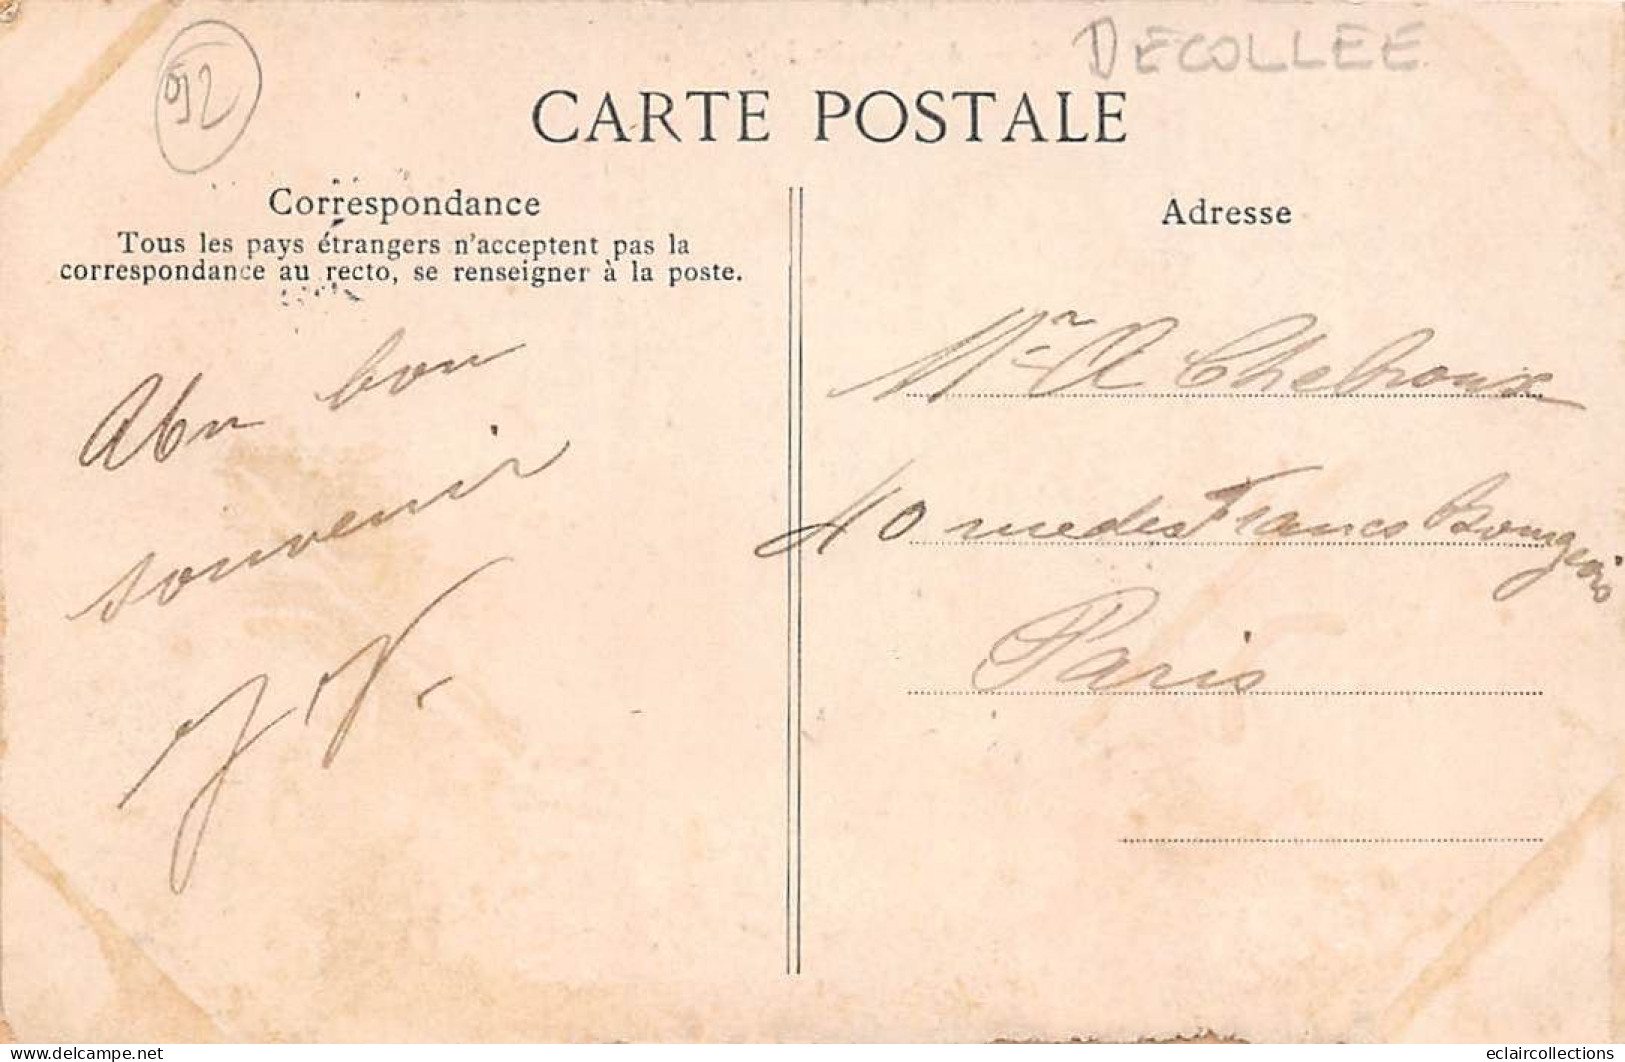 92
DECOLLEE
CARTE POSTALE
Correspondance
Tous les pays étrangers n'acceptent pas la
correspondance au recto, se renseigner à la poste.
bon
souvenir
Adresse
Mr A Chebroux
40 rue des Francs Bourgeois
Paris
delcampe.net
eclaircollections